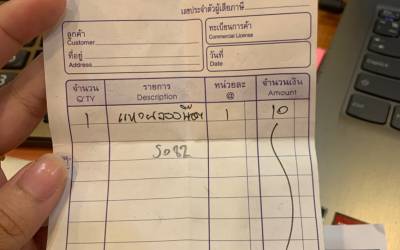 เลขประจำตัวผู้เสียภาษี
ลูกค้า
Customer
ทะเบียนการค้า
Commercial License
ที่อยู่
Address
วันที่
Date
จำนวน รายการ หน่วยละ จำนวนเงิน
Q'TY Description @ Amount
1 1 10